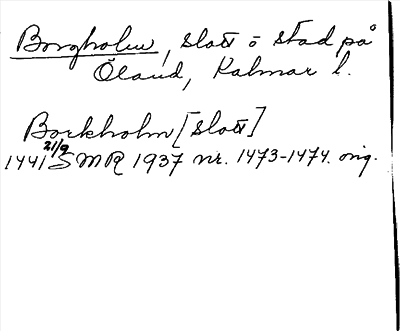 Borgholm, slott o stad på
Öland, Kalmar l.
Borkholm [slott]
1441 21/9 SMR 1937 nr. 1473-1474. orig.